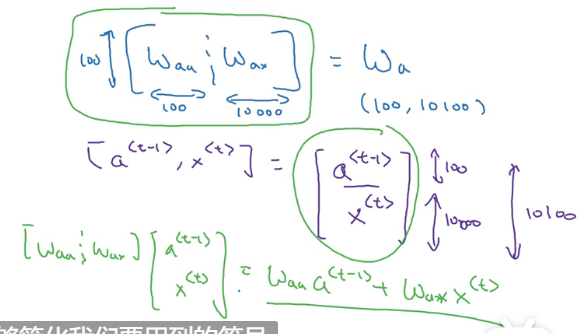 100 [ Waa ¦ Wax ] = Wa
100 10000 (100, 10100)
[a<t-1>, x<t>] = [ a<t-1> 100
x<t> ] 10000 10100
[Waa ¦ Wax] [ a<t-1>
x<t> ] = Waa a<t-1> + Wax x<t>